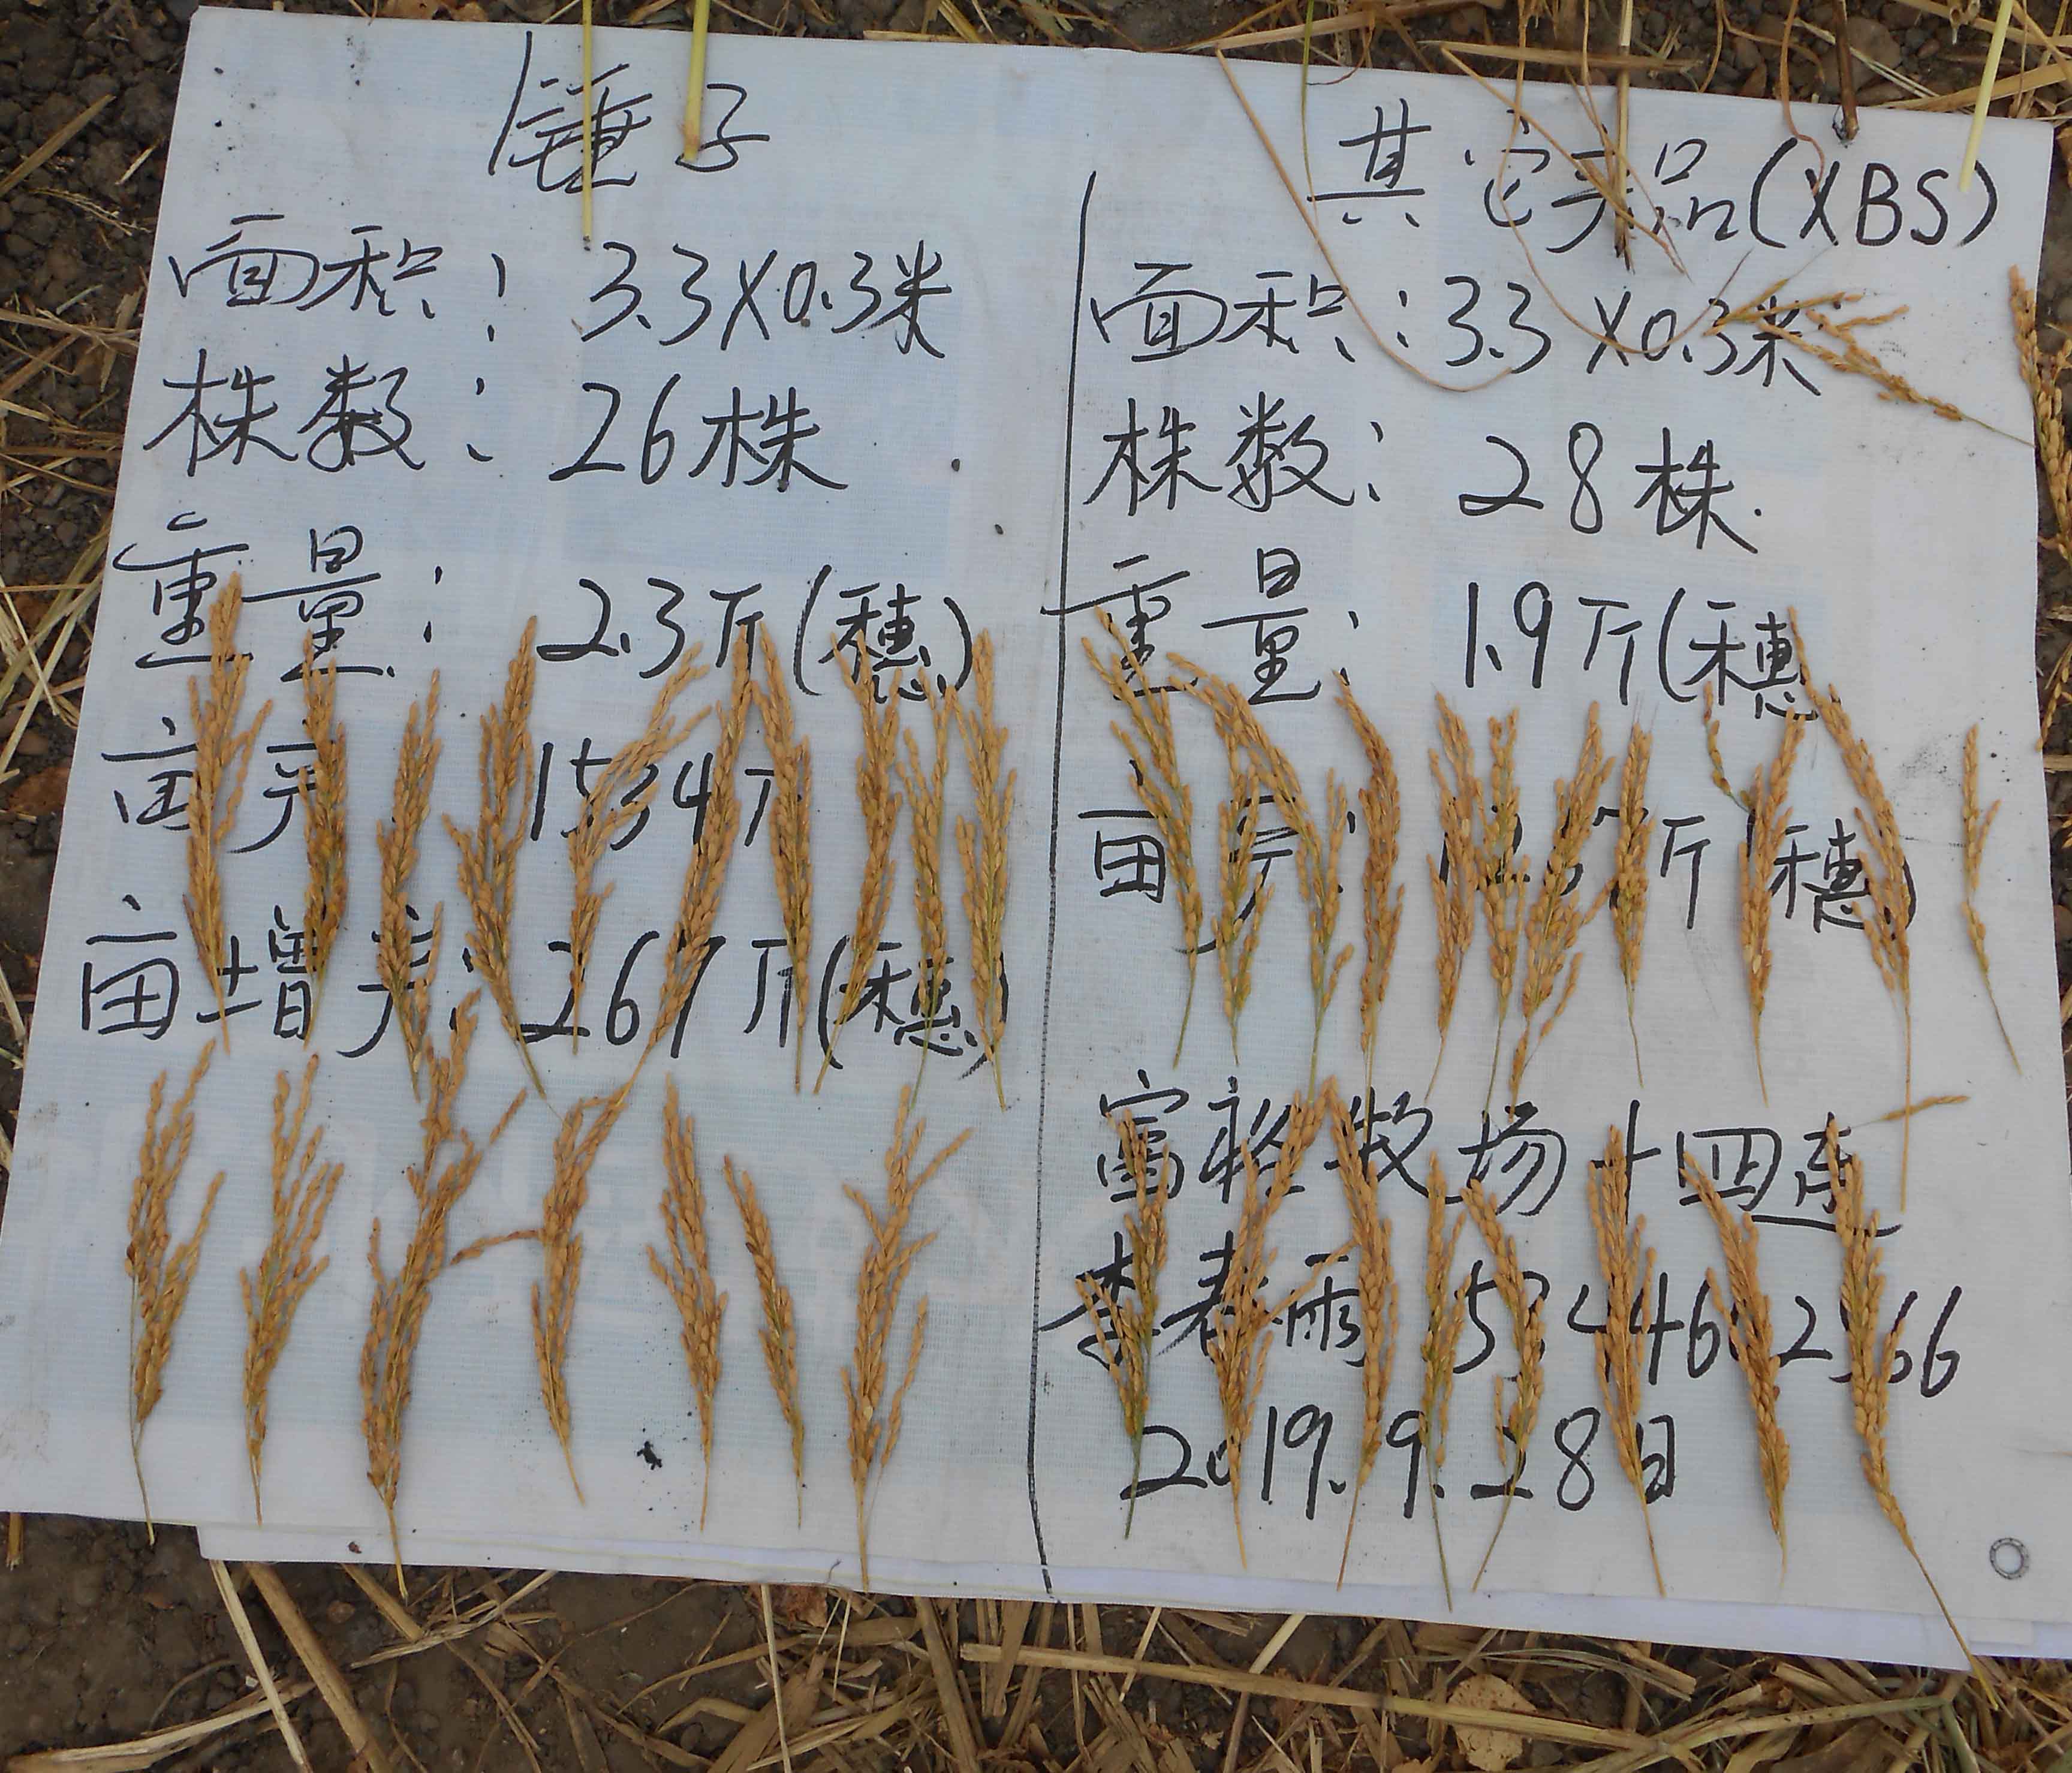 锤子
面积：3.3X0.3米
株数：26株
重量：2.3斤(穗)
亩产 1534斤
亩增产：267斤(穗)
其它产品(XBS)
面积：3.3X0.3米
株数：28株
重量：1.9斤(穗
亩产：斤(穗)
富裕牧场十四连
李春雨
2019.9.28日